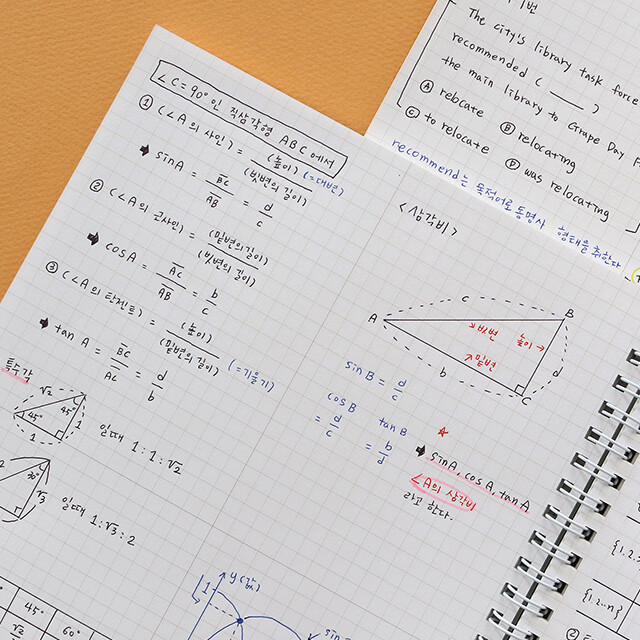 ∠C=90°인 직삼각형 ABC에서
① (∠A의 사인) = (높이)/(빗변의 길이) (=대변)
➡ sinA = BC/AB = d/c
② (∠A의 코사인) = (밑변의길이)/(빗변의 길이)
➡ cosA = AC/AB = b/c
③ (∠A의 탄젠트) = (높이)/(밑변의 길이) (=기울기)
➡ tan A = BC/AC = d/b
특수각
√2
45° 45°
1 1
일때 1:1:√2
2
30°
√3
일때 1:√3:2
45° 60°
√2
<삼각비>
A B C
c
빗변
높이
밑변
b
d
sin B = d/c
cos B = d/c
tan B = b/d
☆
➡ sinA, cosA, tanA
∠A의 삼각비
라고 한다.
1
y(값)
sin
The city's library task force
recommended ( ____ )
the main library to Grape Day
Ⓐ rebcate Ⓑ relocating
Ⓒ to relocate Ⓓ was relocating
recommend는 목적어로 동명사 형태을 취한다
{1.2.
{1.2…n}
②